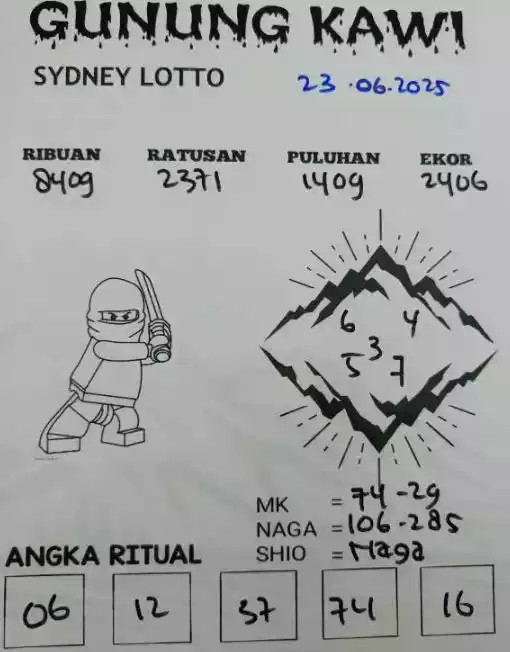 GUNUNG KAWI
SYDNEY LOTTO 23.06.2025
RIBUAN RATUSAN PULUHAN EKOR
8409 2371 1409 2406
6 4
3
5 7
MK = 74-29
NAGA = 106-285
SHIO = Naga
ANGKA RITUAL
06 12 37 74 16